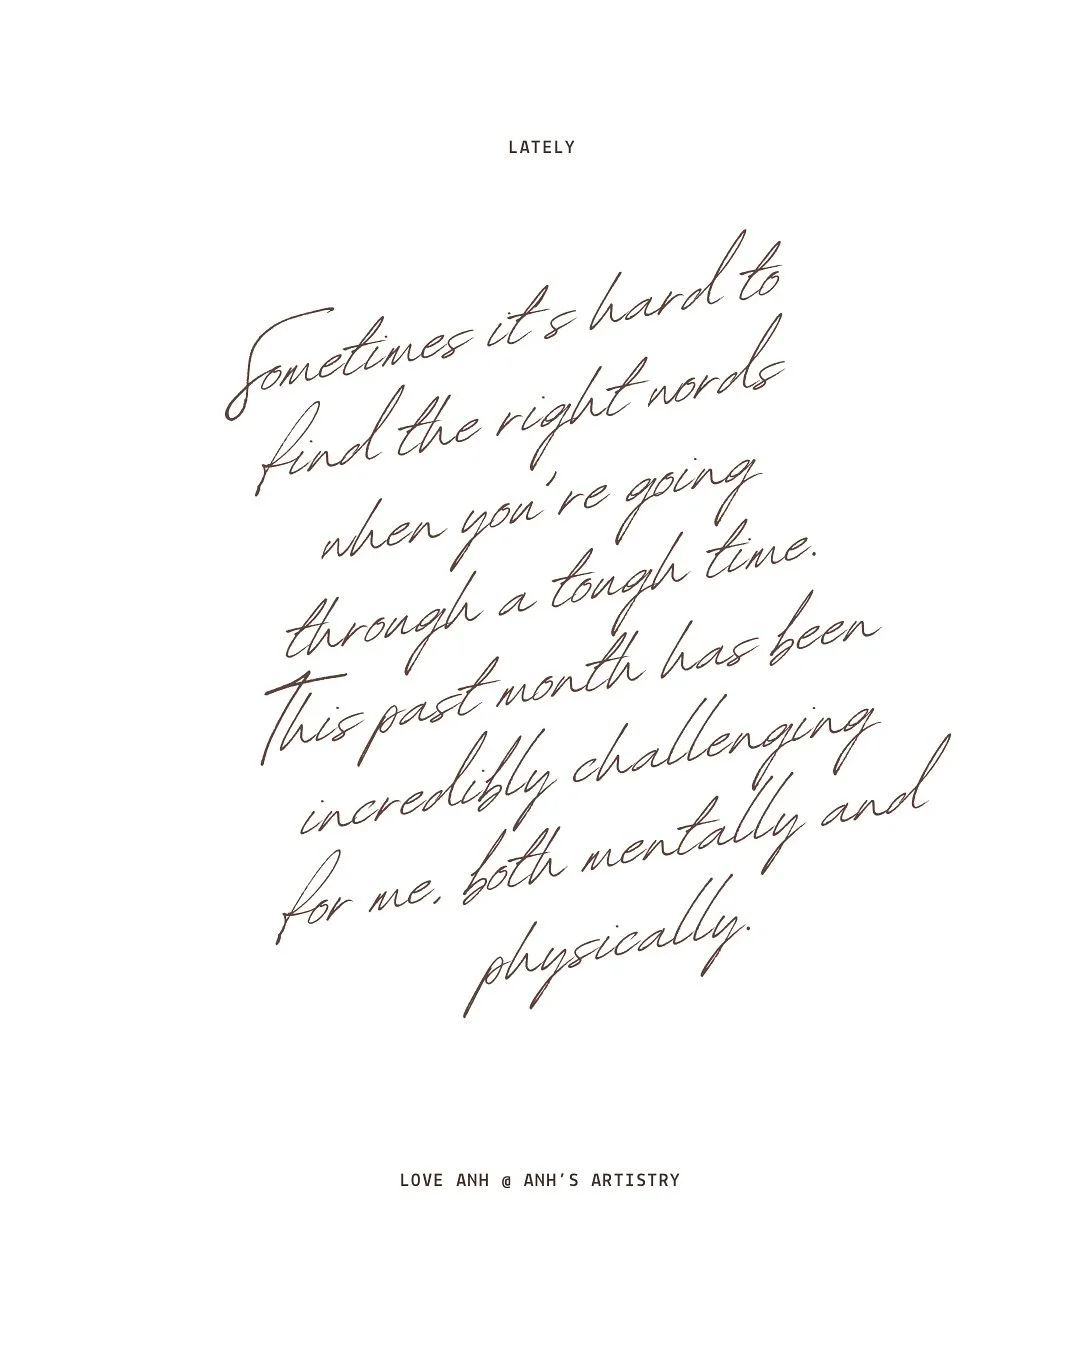 LATELY
Sometimes it's hard to
find the right words
when you're going
through a tough time.
This past month has been
incredibly challenging
for me, both mentally and
physically.
LOVE ANH @ ANH'S ARTISTRY